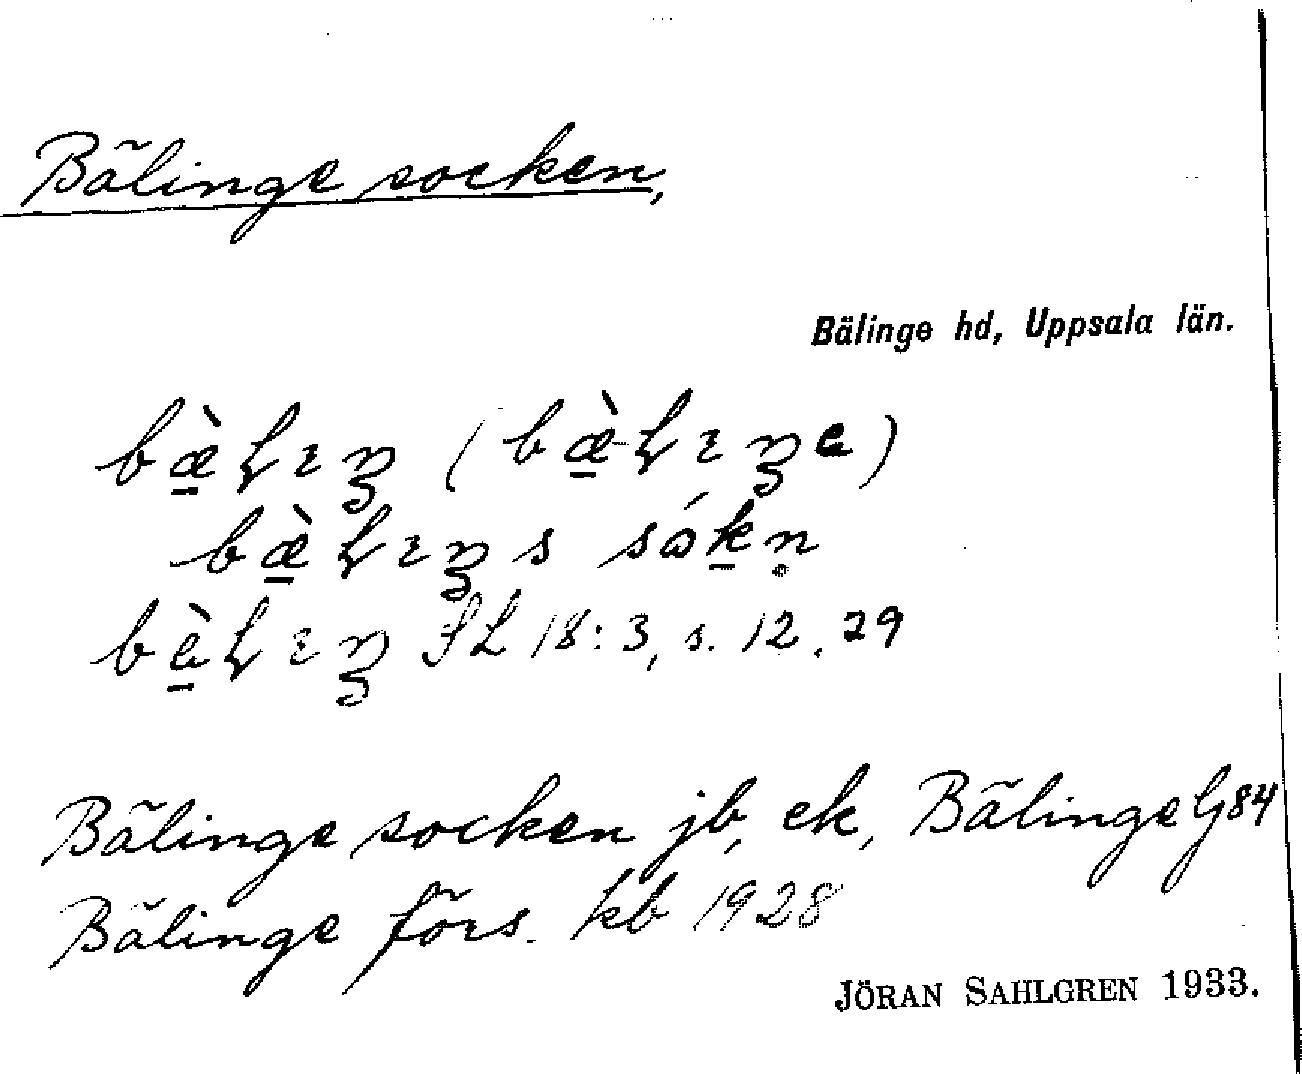 Bälinge socken,
Bälinge hd, Uppsala län.
bæ̱̀ɫɪŋ (bæ̱̀ɫɪŋe)
bæ̱̀ɫɪŋs sóḵṇ
bè̱ɫɪŋ SL 18:3, s. 12, 29
Bälinge socken jb, ek, Bälinge Gj84
Bälinge förs. kb 1928
JÖRAN SAHLGREN 1933.